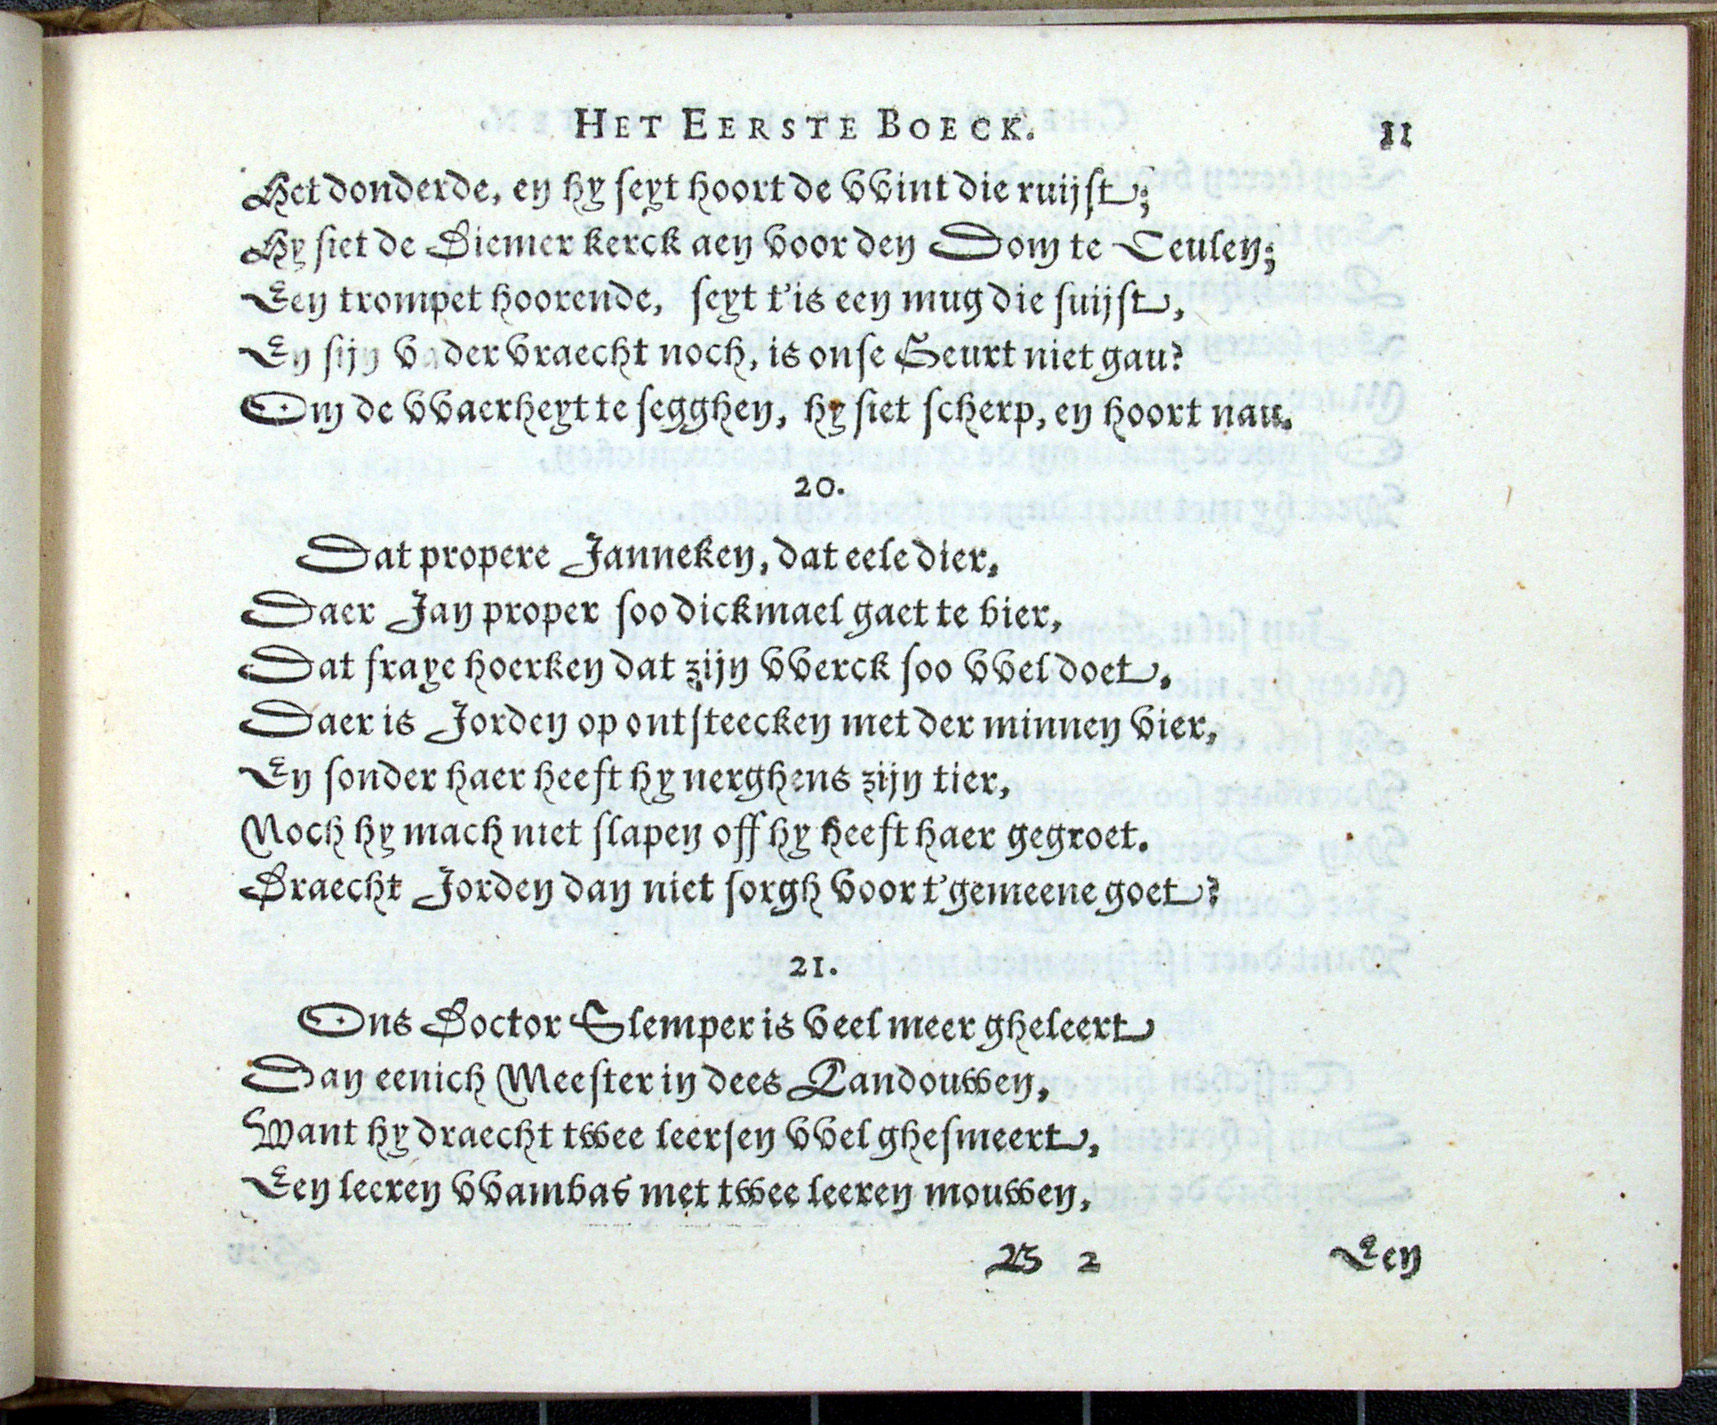 HET EERSTE BOECK. 11
Het donderde, en hy seyt hoort de VVint die ruijst;
Hy siet de Diemer kerck aen voor den Dom te Ceulen;
Een trompet hoorende, seyt t'is een mug die suijst,
En sijn vader vraecht noch, is onse Geurt niet gau?
Om de VVaerheyt te segghen, hy siet scherp, en hoort nau.
20.
Dat propere Janneken, dat eele dier,
Daer Jan proper soo dickmael gaet te bier,
Dat fraye hoerken dat zijn VVerck soo VVel doet,
Daer is Jorden op ontsteecken met der minnen vier,
En sonder haer heeft hy nerghens zijn tier,
Noch hy mach niet slapen off hy heeft haer gegroet.
Draecht Jorden dan niet sorgh voor t'gemeene goet?
21.
Ons Doctor Slemper is veel meer gheleert
Dan eenich Meester in dees Landouwen,
Want hy draecht twee leersen VVel ghesmeert,
Een leeren VVambas met twee leeren mouwen,
B 2 Een